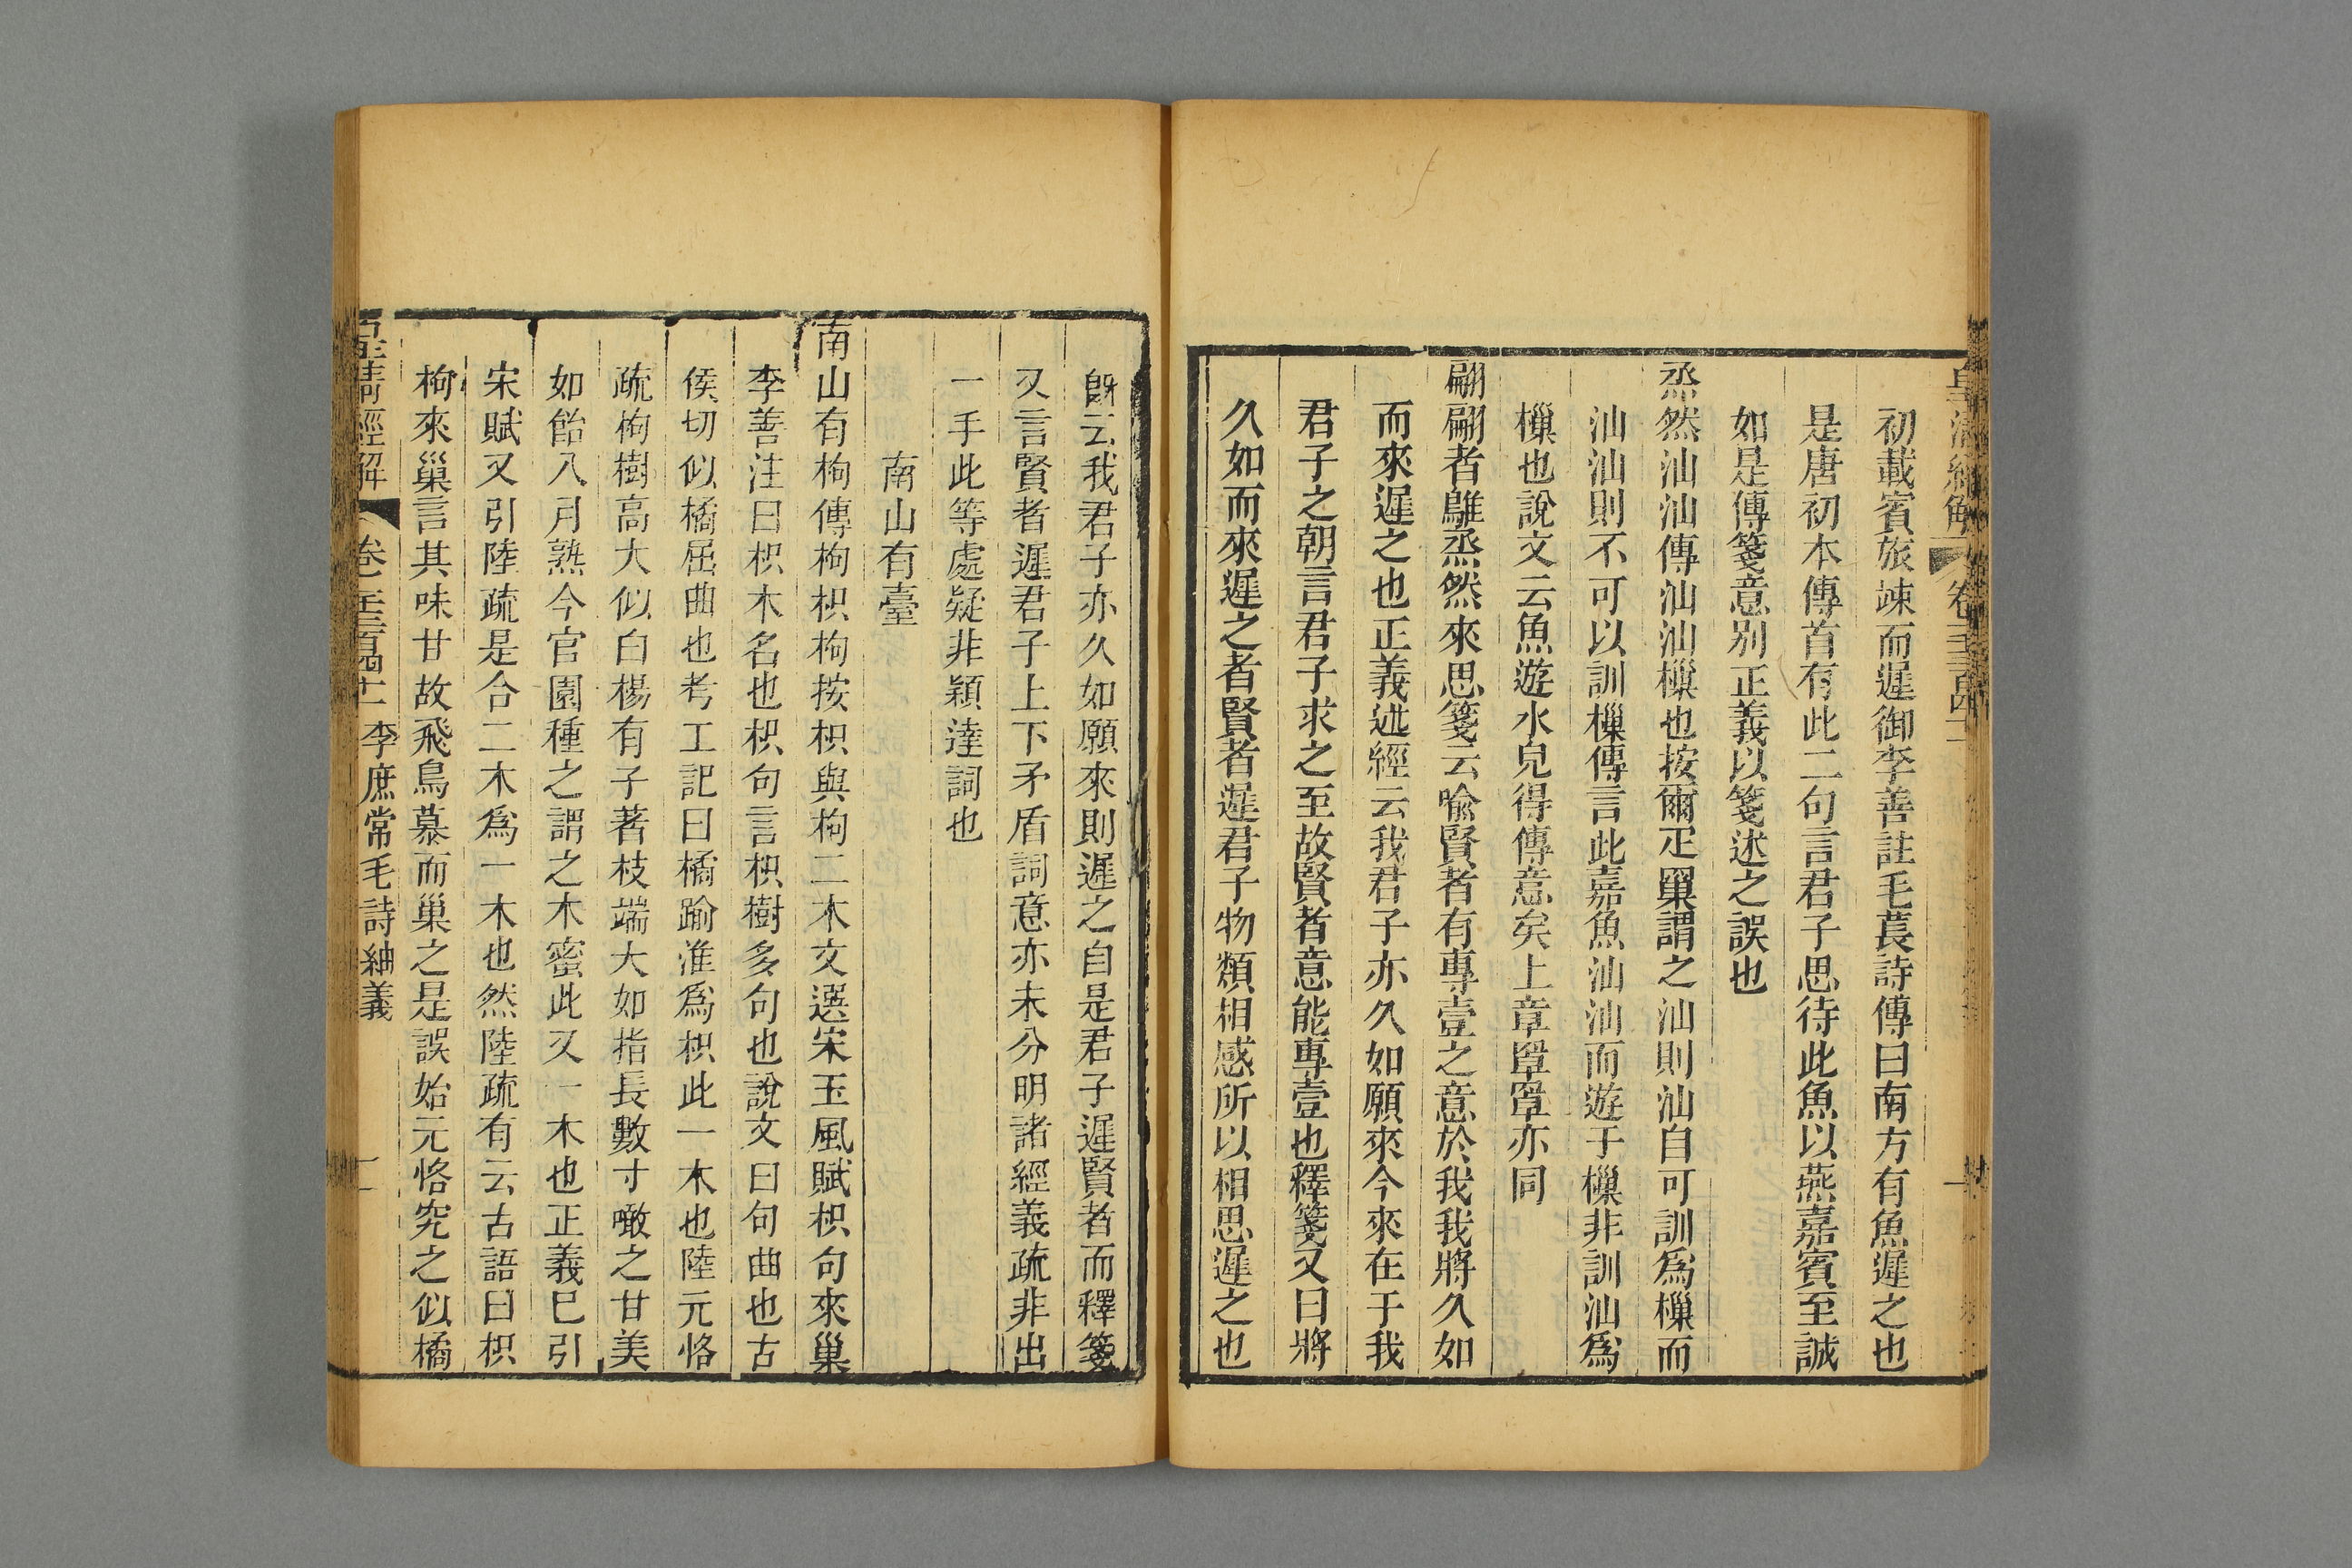 初載賓旅竦而遲御李善註毛萇詩傳曰南方有魚遲之也
是唐初本傳首有此二句言君子思待此魚以燕嘉賓至誠
如是傳箋意别正義以箋述之誤也
烝然汕汕傳汕汕樔也按爾疋罺謂之汕則汕自可訓爲樔而
汕汕則不可以訓樔傳言此嘉魚汕汕而遊于樔非訓汕爲
樔也說文云魚遊水皃得傳意矣上章罩罩亦同
翩翩者鵻烝然來思箋云喻賢者有專壹之意於我我將久如
而來遲之也正義述經云我君子亦久如願來今來在于我
君子之朝言君子求之至故賢者意能專壹也釋箋又曰將
久如而來遲之者賢者遲君子物類相感所以相思遲之也
既云我君子亦久如願來則遲之自是君子遲賢者而釋箋
又言賢者遲君子上下矛盾詞意亦未分明諸經義疏非出
一手此等處疑非穎達詞也
南山有臺
南山有枸傳枸枳枸按枳與枸二木文選宋玉風賦枳句來巢
李善注曰枳木名也枳句言枳樹多句也說文曰句曲也古
侯切似橘屈曲也考工記曰橘踰淮爲枳此一木也陸元恪
疏枸樹高大似白楊有子著枝端大如指長數寸噉之甘美
如飴八月熟今官園種之謂之木蜜此又一木也正義已引
宋賦又引陸疏是合二木爲一木也然陸疏有云古語曰枳
枸來巢言其味甘故飛鳥慕而巢之是誤始元恪究之似橘
皇清經解 卷一千三百四十二 李庶常毛詩紬義